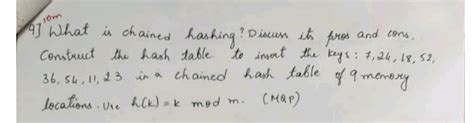 10m
9] What is chained hashing? Discuss its pros and cons.
Construct the hash table to insert the keys : 7, 24, 18, 52,
36, 54, 11, 23 in a chained hash table of 9 memory
locations. Use h(k) = k mod m. (MQP)